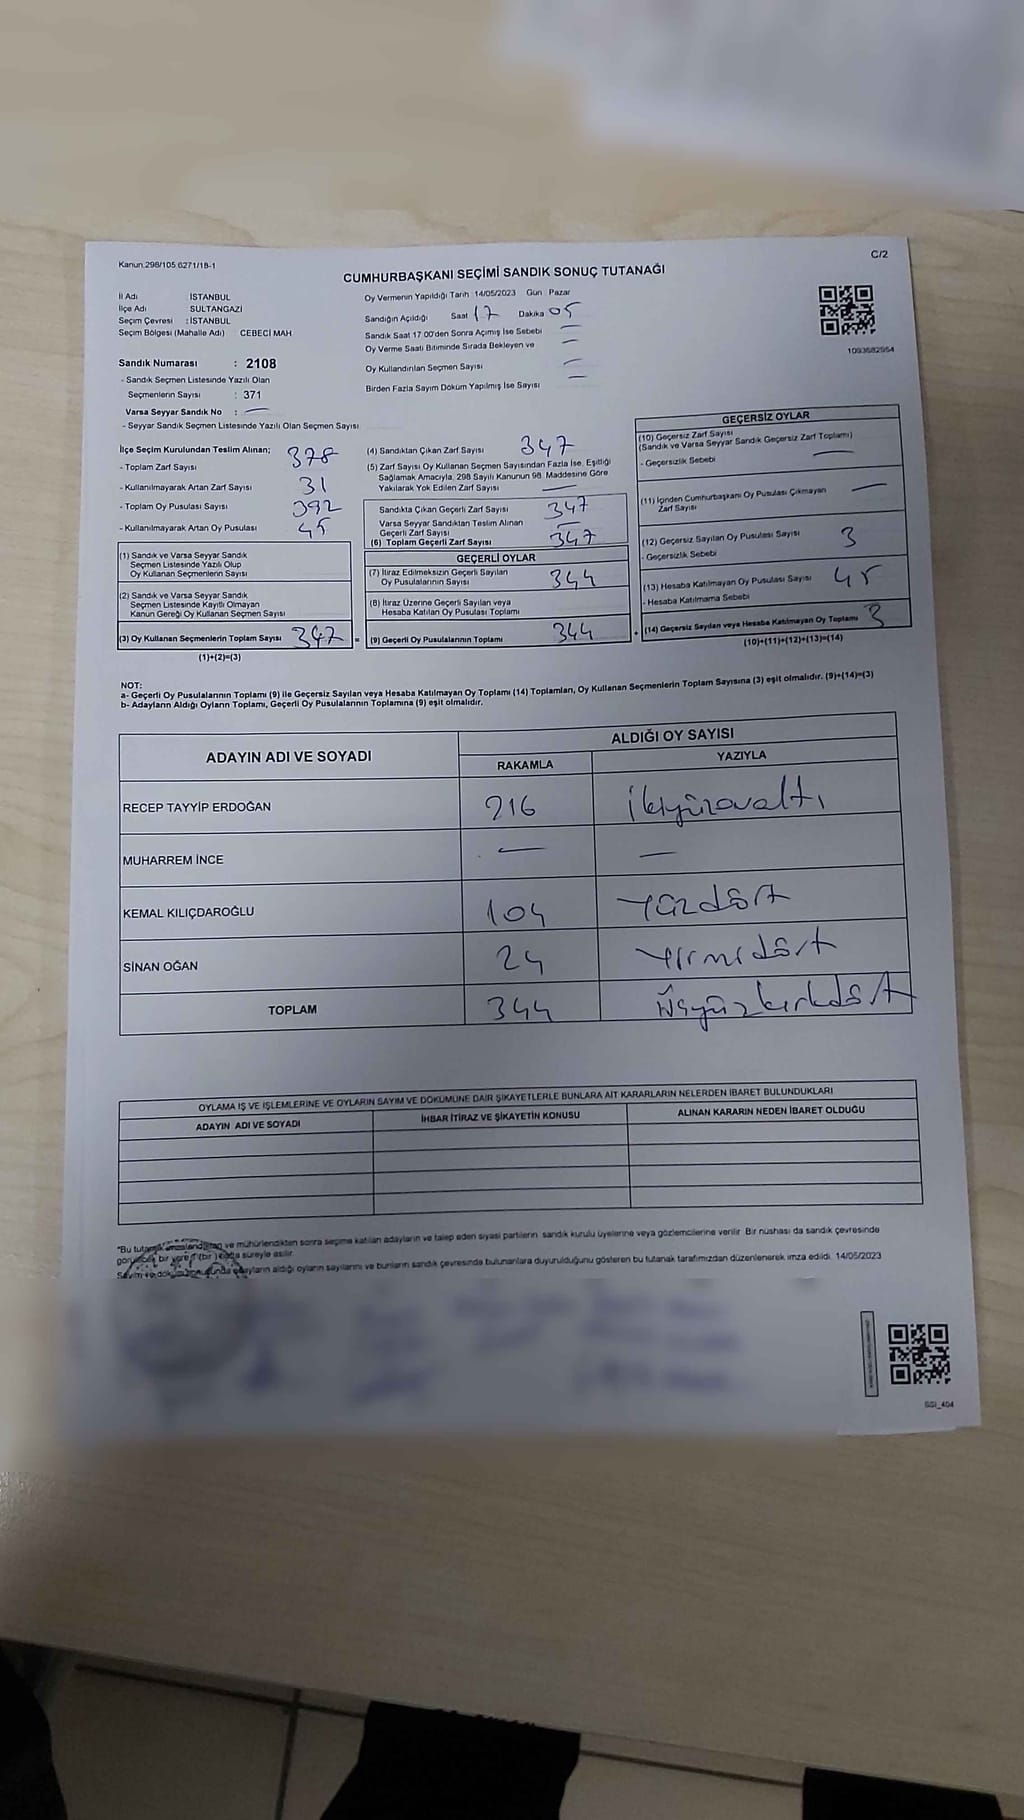 Kanun.298/105 6271/18-1
C/2
CUMHURBAŞKANI SEÇİMİ SANDIK SONUÇ TUTANAĞI
İl Adı İSTANBUL
İlçe Adı SULTANGAZİ
Seçim Çevresi : İSTANBUL
Seçim Bölgesi (Mahalle Adı) CEBECİ MAH
Oy Vermenin Yapıldığı Tarih 14/05/2023 Gün Pazar
Sandığın Açıldığı Saat 17 Dakika 05
Sandık Saat 17.00'den Sonra Açımış İse Sebebi —
Oy Verme Saati Bitiminde Sırada Bekleyen ve —
Oy Kullandırılan Seçmen Sayısı —
Birden Fazla Sayım Döküm Yapılmış İse Sayısı —
1093682954
Sandık Numarası : 2108
- Sandık Seçmen Listesinde Yazılı Olan
Seçmenlerin Sayısı : 371
Varsa Seyyar Sandık No : —
- Seyyar Sandık Seçmen Listesinde Yazılı Olan Seçmen Sayısı
İlçe Seçim Kurulundan Teslim Alınan;
- Toplam Zarf Sayısı 378
- Kullanılmayarak Artan Zarf Sayısı 31
- Toplam Oy Pusulası Sayısı 392
- Kullanılmayarak Artan Oy Pusulası 45
(1) Sandık ve Varsa Seyyar Sandık
Seçmen Listesinde Yazılı Olup
Oy Kullanan Seçmenlerin Sayısı
(2) Sandık ve Varsa Seyyar Sandık
Seçmen Listesinde Kayıtlı Olmayan
Kanun Gereği Oy Kullanan Seçmen Sayısı
(3) Oy Kullanan Seçmenlerin Toplam Sayısı 347 =
(1)+(2)=(3)
(4) Sandıktan Çıkan Zarf Sayısı 347
(5) Zarf Sayısı Oy Kullanan Seçmen Sayısından Fazla İse, Eşitliği
Sağlamak Amacıyla, 298 Sayılı Kanunun 98. Maddesine Göre
Yakılarak Yok Edilen Zarf Sayısı —
Sandıkta Çıkan Geçerli Zarf Sayısı 347
Varsa Seyyar Sandıktan Teslim Alınan
Geçerli Zarf Sayısı —
(6) Toplam Geçerli Zarf Sayısı 347
GEÇERLİ OYLAR
(7) İtiraz Edilmeksizin Geçerli Sayılan
Oy Pusulalarının Sayısı 344
(8) İtiraz Üzerine Geçerli Sayılan veya
Hesaba Katılan Oy Pusulası Toplamı
(9) Geçerli Oy Pusulalarının Toplamı 344 +
GEÇERSİZ OYLAR
(10) Geçersiz Zarf Sayısı
(Sandık ve Varsa Seyyar Sandık Geçersiz Zarf Toplamı)
- Geçersizlik Sebebi —
(11) İçinden Cumhurbaşkanı Oy Pusulası Çıkmayan
Zarf Sayısı —
(12) Geçersiz Sayılan Oy Pusulası Sayısı 3
- Geçersizlik Sebebi
(13) Hesaba Katılmayan Oy Pusulası Sayısı 45
- Hesaba Katılmama Sebebi
(14) Geçersiz Sayılan veya Hesaba Katılmayan Oy Toplamı 3
(10)+(11)+(12)+(13)=(14)
NOT:
a- Geçerli Oy Pusulalarının Toplamı (9) ile Geçersiz Sayılan veya Hesaba Katılmayan Oy Toplamı (14) Toplamları, Oy Kullanan Seçmenlerin Toplam Sayısına (3) eşit olmalıdır. (9)+(14)=(3)
b- Adayların Aldığı Oyların Toplamı, Geçerli Oy Pusulalarının Toplamına (9) eşit olmalıdır.
ADAYIN ADI VE SOYADI ALDIĞI OY SAYISI
RAKAMLA YAZIYLA
RECEP TAYYİP ERDOĞAN 216 ikiyüzonaltı
MUHARREM İNCE — —
KEMAL KILIÇDAROĞLU 104 Yüzdört
SİNAN OĞAN 24 Yirmidört
TOPLAM 344 Üçyüzkırkdört
OYLAMA İŞ VE İŞLEMLERİNE VE OYLARIN SAYIM VE DÖKÜMÜNE DAİR ŞİKAYETLERLE BUNLARA AİT KARARLARIN NELERDEN İBARET BULUNDUKLARI
ADAYIN ADI VE SOYADI İHBAR İTİRAZ VE ŞİKAYETİN KONUSU ALINAN KARARIN NEDEN İBARET OLDUĞU
*Bu tutanak imzalandıktan ve mühürlendikten sonra seçime katılan adayların ve talep eden siyasi partilerin sandık kurulu üyelerine veya gözlemcilerine verilir. Bir nüshası da sandık çevresinde
görülebilir bir yere 1 (bir) hafta süreyle asılır.
Sayım ve döküm sonucunda adayların aldığı oyların sayılarını ve bunların sandık çevresinde bulunanlara duyurulduğunu gösteren bu tutanak tarafımızdan düzenlenerek imza edildi. 14/05/2023
SGI_404